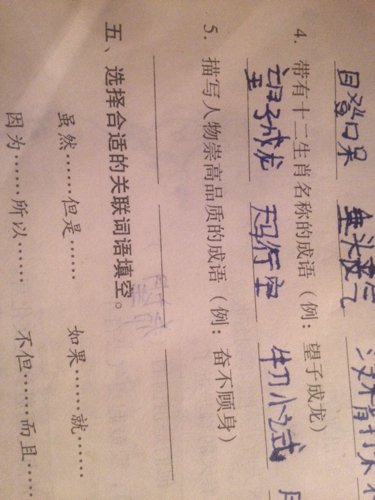 目登口呆 垂头丧气
4. 带有十二生肖名称的成语（例：望子成龙）
望子成龙 天马行空 牛刀小试
5. 描写人物崇高品质的成语（例：奋不顾身）
五、选择合适的关联词语填空。
虽然……但是…… 如果……就……
因为……所以…… 不但……而且……